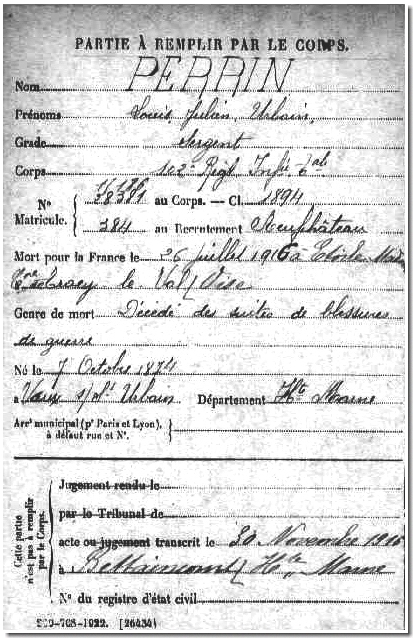 PARTIE À REMPLIR PAR LE CORPS.
Nom PERRIN
Prénoms Louis Julien, Urbain,
Grade Sergent
Corps 102e Régt Infie tale
N° Matricule. { 38381 au Corps. — Cl. 1894
384 au Recrutement Neufchâteau
Mort pour la France le 26 juillet 1916 à
Cne de Tracy le Val / Oise
Genre de mort Décédé des suites de blessures
de guerre
Né le 7 Octobre 1874
à Vaux s/ St Urbain Département Hte Marne
Arrt municipal (pr Paris et Lyon),
à défaut rue et N°.
Cette partie n'est pas à remplir par le Corps.
Jugement rendu le
par le Tribunal de
acte ou jugement transcrit le 30 Novembre 1916
à Bettaincourt / Hte Marne
N° du registre d'état civil
[26434]